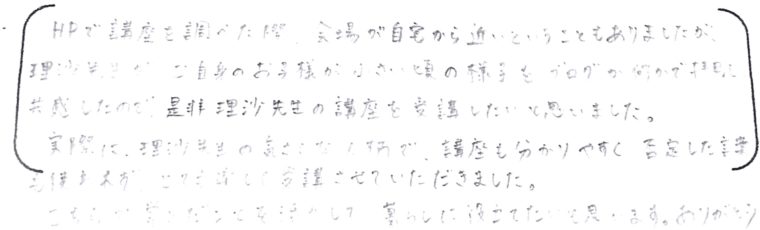 HPで講座を調べた際、会場が自宅から近いということもありましたが、
理沙先生が、ご自身のお子様が小さい頃の様子をブログか何かで拝見し
共感したので、是非理沙先生の講座を受講したいと思いました。
実際に、理沙先生の で、講座も分かりやすく 否定した
とても楽しく受講させていただきました。
こちらで 活かして 暮らしに役立てたいと思います。ありがとう